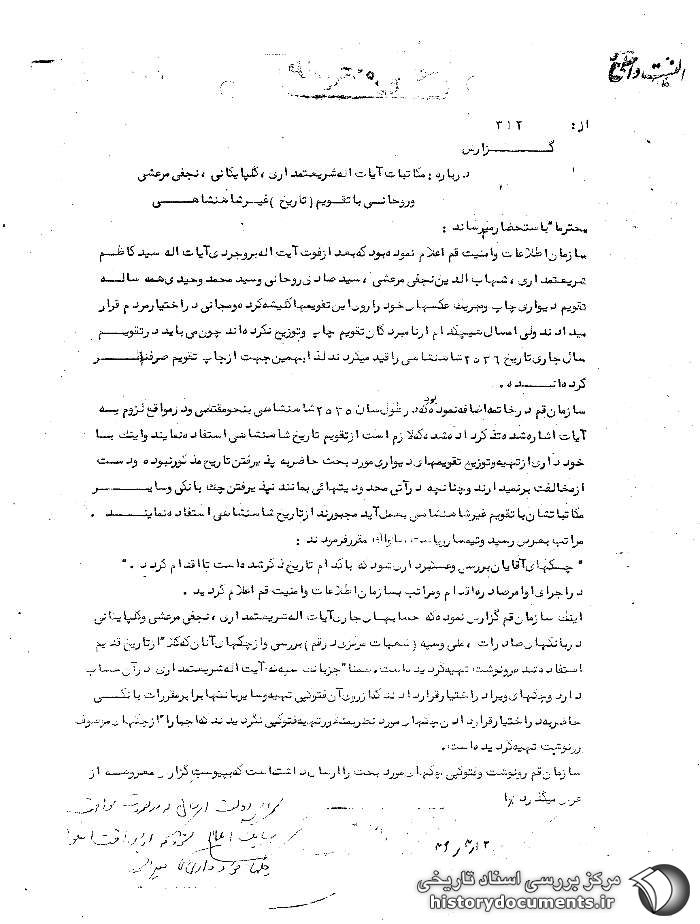 از: ۳۱۲
گـــزارش
درباره: مکاتبات آیات اله شریعتمداری، گلپایگانی، نجفی مرعشی
وروحانـی با تقویم (تاریخ) غیـرشاهنشاهـــی
محترما" باستحضار میرساند:
سازمان اطلاعات وامنیت قم اعلام نموده بود که بعد ازفوت آیت اله بروجردی آیات اله سید کاظم
شریعتمداری، شهاب الدین نجفی مرعشی، سید صادق روحانی وسید محمد وحیدی همه سالـه
تقویم دیواری چاپ وهریک عکسهای خود را روی این تقویمها کلیشه کرده ومجانی دراختیار مردم قرار
میدادند ولی امسال هیچکدام ازنامبردگان تقویم چاپ وتوزیع نکرده اند چون می باید در تقویـم
سال جاری تاریخ ۲۵۳۶ شاهنشاهی را قید میکردند لذا بهمین جهت ازچاپ تقویم صرفنظـــر
کرده انـــد.
سازمان قم درخاتمه اضافه نموده بود که در طول سال ۲۵۳۵ شاهنشاهی بنحو مقتضی ودرمواقع لزوم بـه
آیات اشاره شده تذکر داده شده که لازم است ازتقویم تاریخ شاهنشاهی استفاده نمایند واینک بـا
خود داری از تهیه وتوزیع تقویمهای دیواری مورد بحث حاضر به پذیرفتن تاریخ مذکور نبوده ودست
ازمخالفت برنمیدارند وچنانچه درآتی محدودیتهائی بمانند نپذیرفتن چک بانکی وسایـــر
مکاتباتشان با تقویم غیرشاهنشاهی بعمل آید مجبورند ازتاریخ شاهنشاهی استفاده نماینـــد.
مراتب بعرض رسید وتیمسار ریاست ساواک مقرر فرمودند:
"چکهای آقایان بررسی وعکسبرداری شود که با کدام تاریخ ذکر شده است تا اقدام گردد."
در اجرای اوامر صادره اقدام ومراتب بسازمان اطلاعات وامنیت قم اعلام گردید.
اینک سازمان قم گزارش نموده که حسابهای جاری آیات اله شریعتمداری، نجفی مرعشی وگلپایگانی
در بانکهای صادرات، ملی وسپه (شعبات مرکزی در قم) بررسی وازچکهای آنان که کلا" ازتاریخ قدیم
استفاده شده رونوشت تهیه گردیده است. ضمنا" چون بانک سپه که آیت اله شریعتمداری درآن حساب
دارد وچکهای ویرا دراختیار قرار دادند لذا ازروی آن فتوکپی تهیه وسایر بانکها بنا برمقررات بانکـی
حاضر به دراختیار قرار دادن چکهای مورد نظر بمنظور تهیه فتوکپی نگردیدند که اجبارا" ازچکهای موصوف
رونوشت تهیه گردیده است.
سازمان قم رونوشت وفتوکپی چکهای مورد بحث را ارسال داشته است که بپیوست گزارش معروضه از
عرض میگذرد.
مرکز بررسی اسناد تاریخی
historydocuments.ir